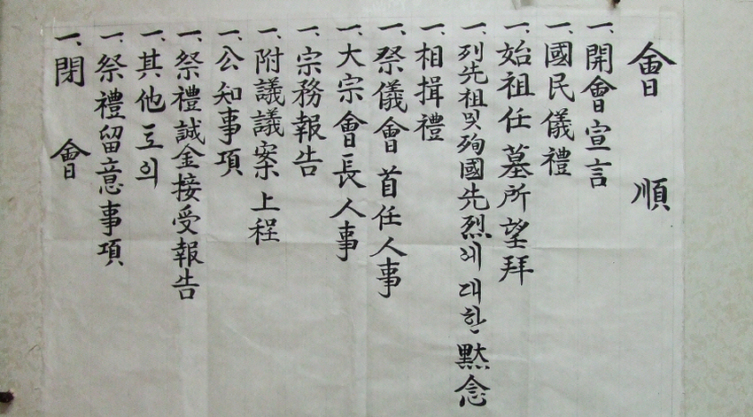 會順
一. 開會宣言
一. 國民儀禮
一. 始祖任墓所望拜
一. 列先祖 및 殉國先烈에 대한 黙念
一. 相揖禮
一. 祭儀會首任人事
一. 大宗會長人事
一. 宗務報告
一. 附議議案上程
一. 公知事項
一. 祭禮誠金接受報告
一. 其他 토의
一. 祭禮留意事項
一. 閉會